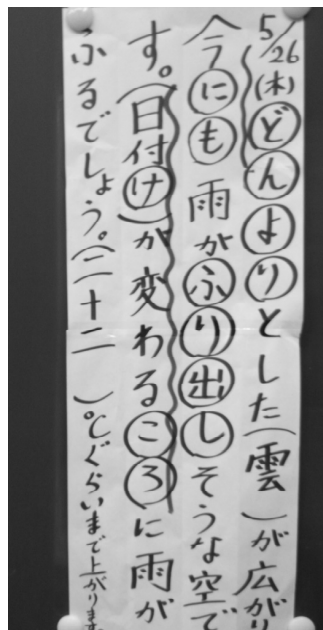 5/26(木)どんよりとした(雲)が広がり
今にも雨がふり出しそうな空で
す。(日付け)が変わるころに雨が
ふるでしょう。(二十二)℃ぐらいまで上がります